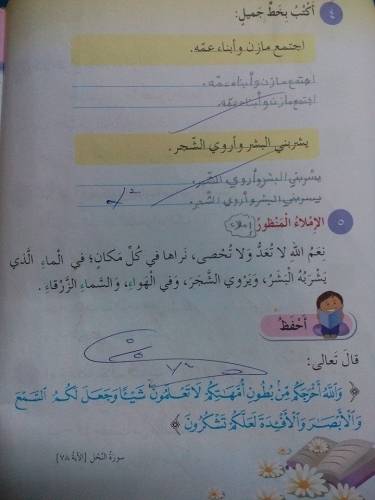 ٤ أَكْتُبُ بِخَطٍّ جَميلٍ:
اجتمع مازن وأبناء عمّه.
اجتمع مازن وأبناء عمّه.
اجتمع مازن وأبناء عمّه.
يشربني البشر وأروي الشّجر.
يشربني البشر وأروي الشّجر.
يشربني البشر وأروي الشّجر.
٥ الإِمْلاءُ الْمَنْظورُ إملاء
نِعَمُ اللّهِ لا تُعَدُّ وَلا تُحْصى، نَراها في كُلِّ مَكانٍ؛ في الْماءِ الَّذي
يَشْرَبُهُ الْبَشَرُ، وَيَرْوي الشَّجَرَ، وَفي الْهَواءِ، وَالسَّماءِ الزَّرْقاءِ.
أَحْفَظُ
قالَ تَعالى:
﴿ وَاللَّهُ أَخْرَجَكُم مِّنْ بُطُونِ أُمَّهَاتِكُمْ لَا تَعْلَمُونَ شَيْئًا وَجَعَلَ لَكُمُ السَّمْعَ
وَالْأَبْصَارَ وَالْأَفْئِدَةَ لَعَلَّكُمْ تَشْكُرُونَ ﴾
سورةُ النّحْلِ [الآيَةُ ٧٨]